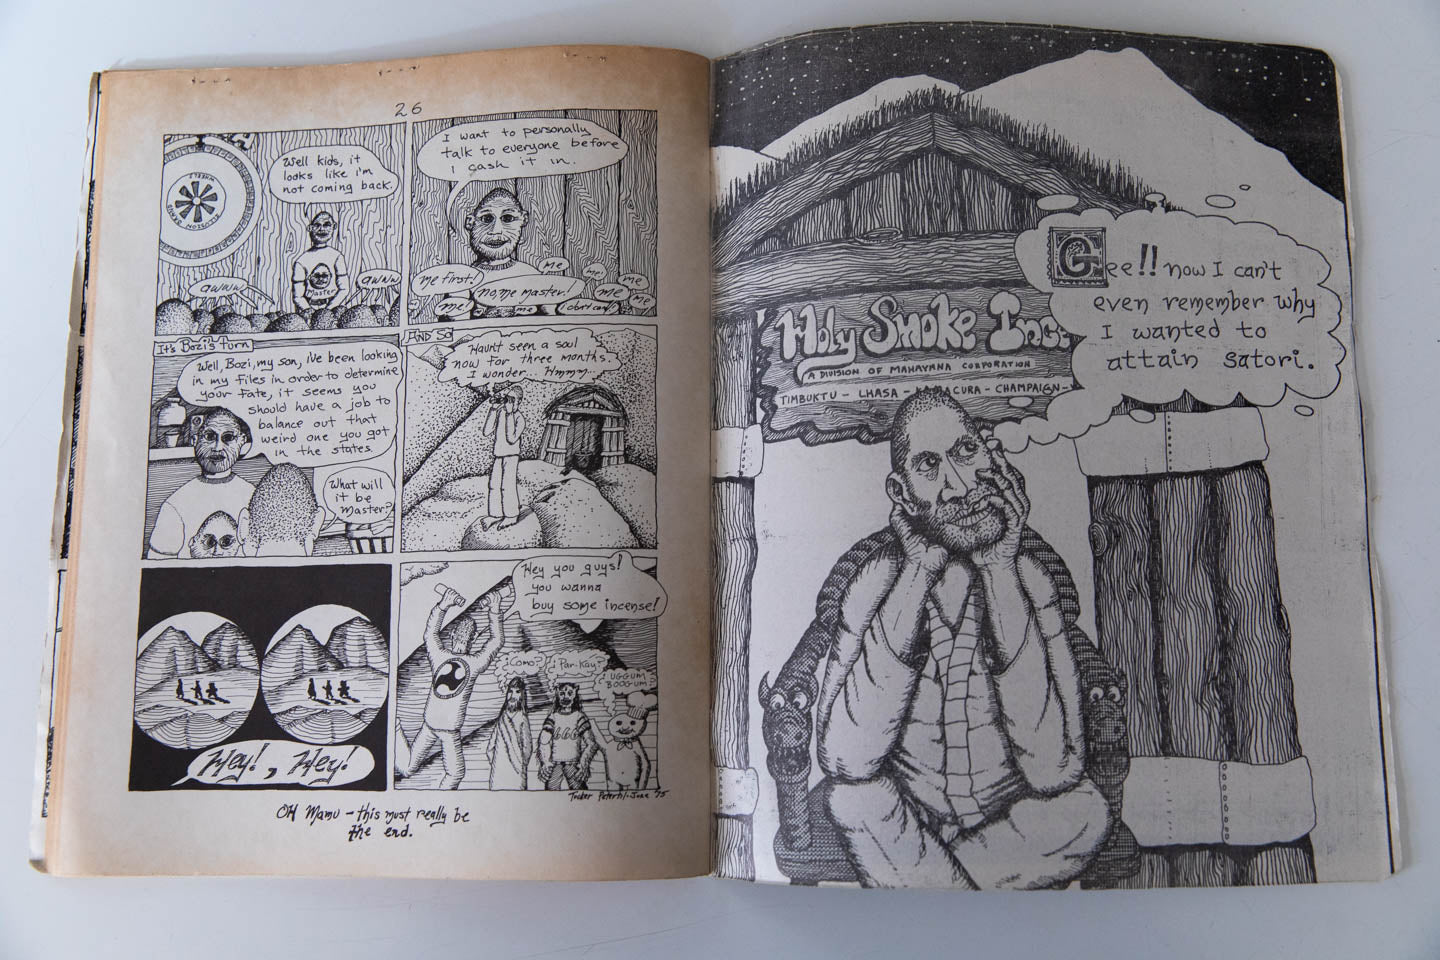 26
Well kids, it
looks like i'm
not coming back.
WHEELZ
ILLUSION BRAND
Master
awww
awww
I want to personally
talk to everyone before
I cash it in.
me first!
no, me master!
me
me
me
me
me
me
me
It's Bozi's Turn
Well, Bozi, my son, i've been looking
in my files in order to determine
your fate, it seems you
should have a job to
balance out that
weird one you got
in the states.
What will
it be
Master?
AND SO
Haunt seen a soul
now for three months.
I wonder. Hmmm...
Hey!, Hey!
Hey you guys!
you wanna
buy some incense!
¿Como?
¿Par-Kay?
¿UGGUM
BOOGUM?
666
June '75
OH Mamu - this must really be
the end.
Gee!! now I can't
even remember why
I wanted to
attain satori.
Holy Smoke Inc.
A DIVISION OF MAHAYANA CORPORATION
TIMBUKTU - LHASA - KAMACURA - CHAMPAIGN -